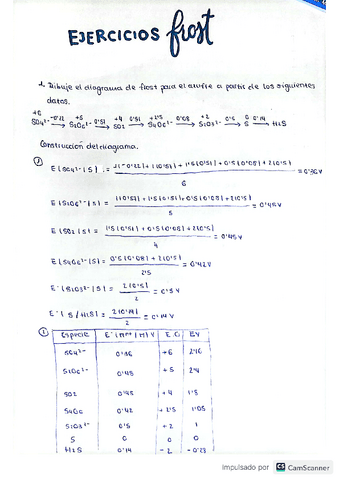 EJERCICIOS frost
1. Dibuje el diagrama de frost para el azufre a partir de los siguientes
datos.
+6 +5 +4 +2'5 +2 0
SO4²⁻ -0'22→ S2O6²⁻ 0'57→ SO2 0'51→ S4O6²⁻ 0'08→ S2O3²⁻ 0'5→ S 0'14→ H2S
Construcción del diagrama.
E (SO4²⁻ | S) = 1(-0'22) + 1(0'57) + 1'5(0'51) + 0'5(0'08) + 2(0'5) / 6 = 0'36V
E (S2O6²⁻ | S) = 1(0'57) + 1'5(0'51) + 0'5(0'08) + 2(0'5) / 5
E (SO2 | S) = 1'5(0'51) + 0'5(0'08) + 2(0'5) / 4 = 0'45V
E (S4O6²⁻ | S) = 0'5(0'08) + 2(0'5) / 2'5 = 0'42V
E° (S2O3²⁻ | S) = 2(0'5) / 2 = 0'5V
E° (S / H2S) = 2(0'14) / 2 = 0'14V
Especie E° (Mⁿ⁺ | M) V E.O EV
SO4²⁻ +6 2'16
S2O6²⁻ 0'48 +5 2'4
SO2 0'45 +4 1'8
S4O6 0'42 +2'5 1'05
S2O3²⁻ 0'5 +2 1
S 0 0 0
H2S 0'14 -2 -0'28
Impulsado por CS CamScanner